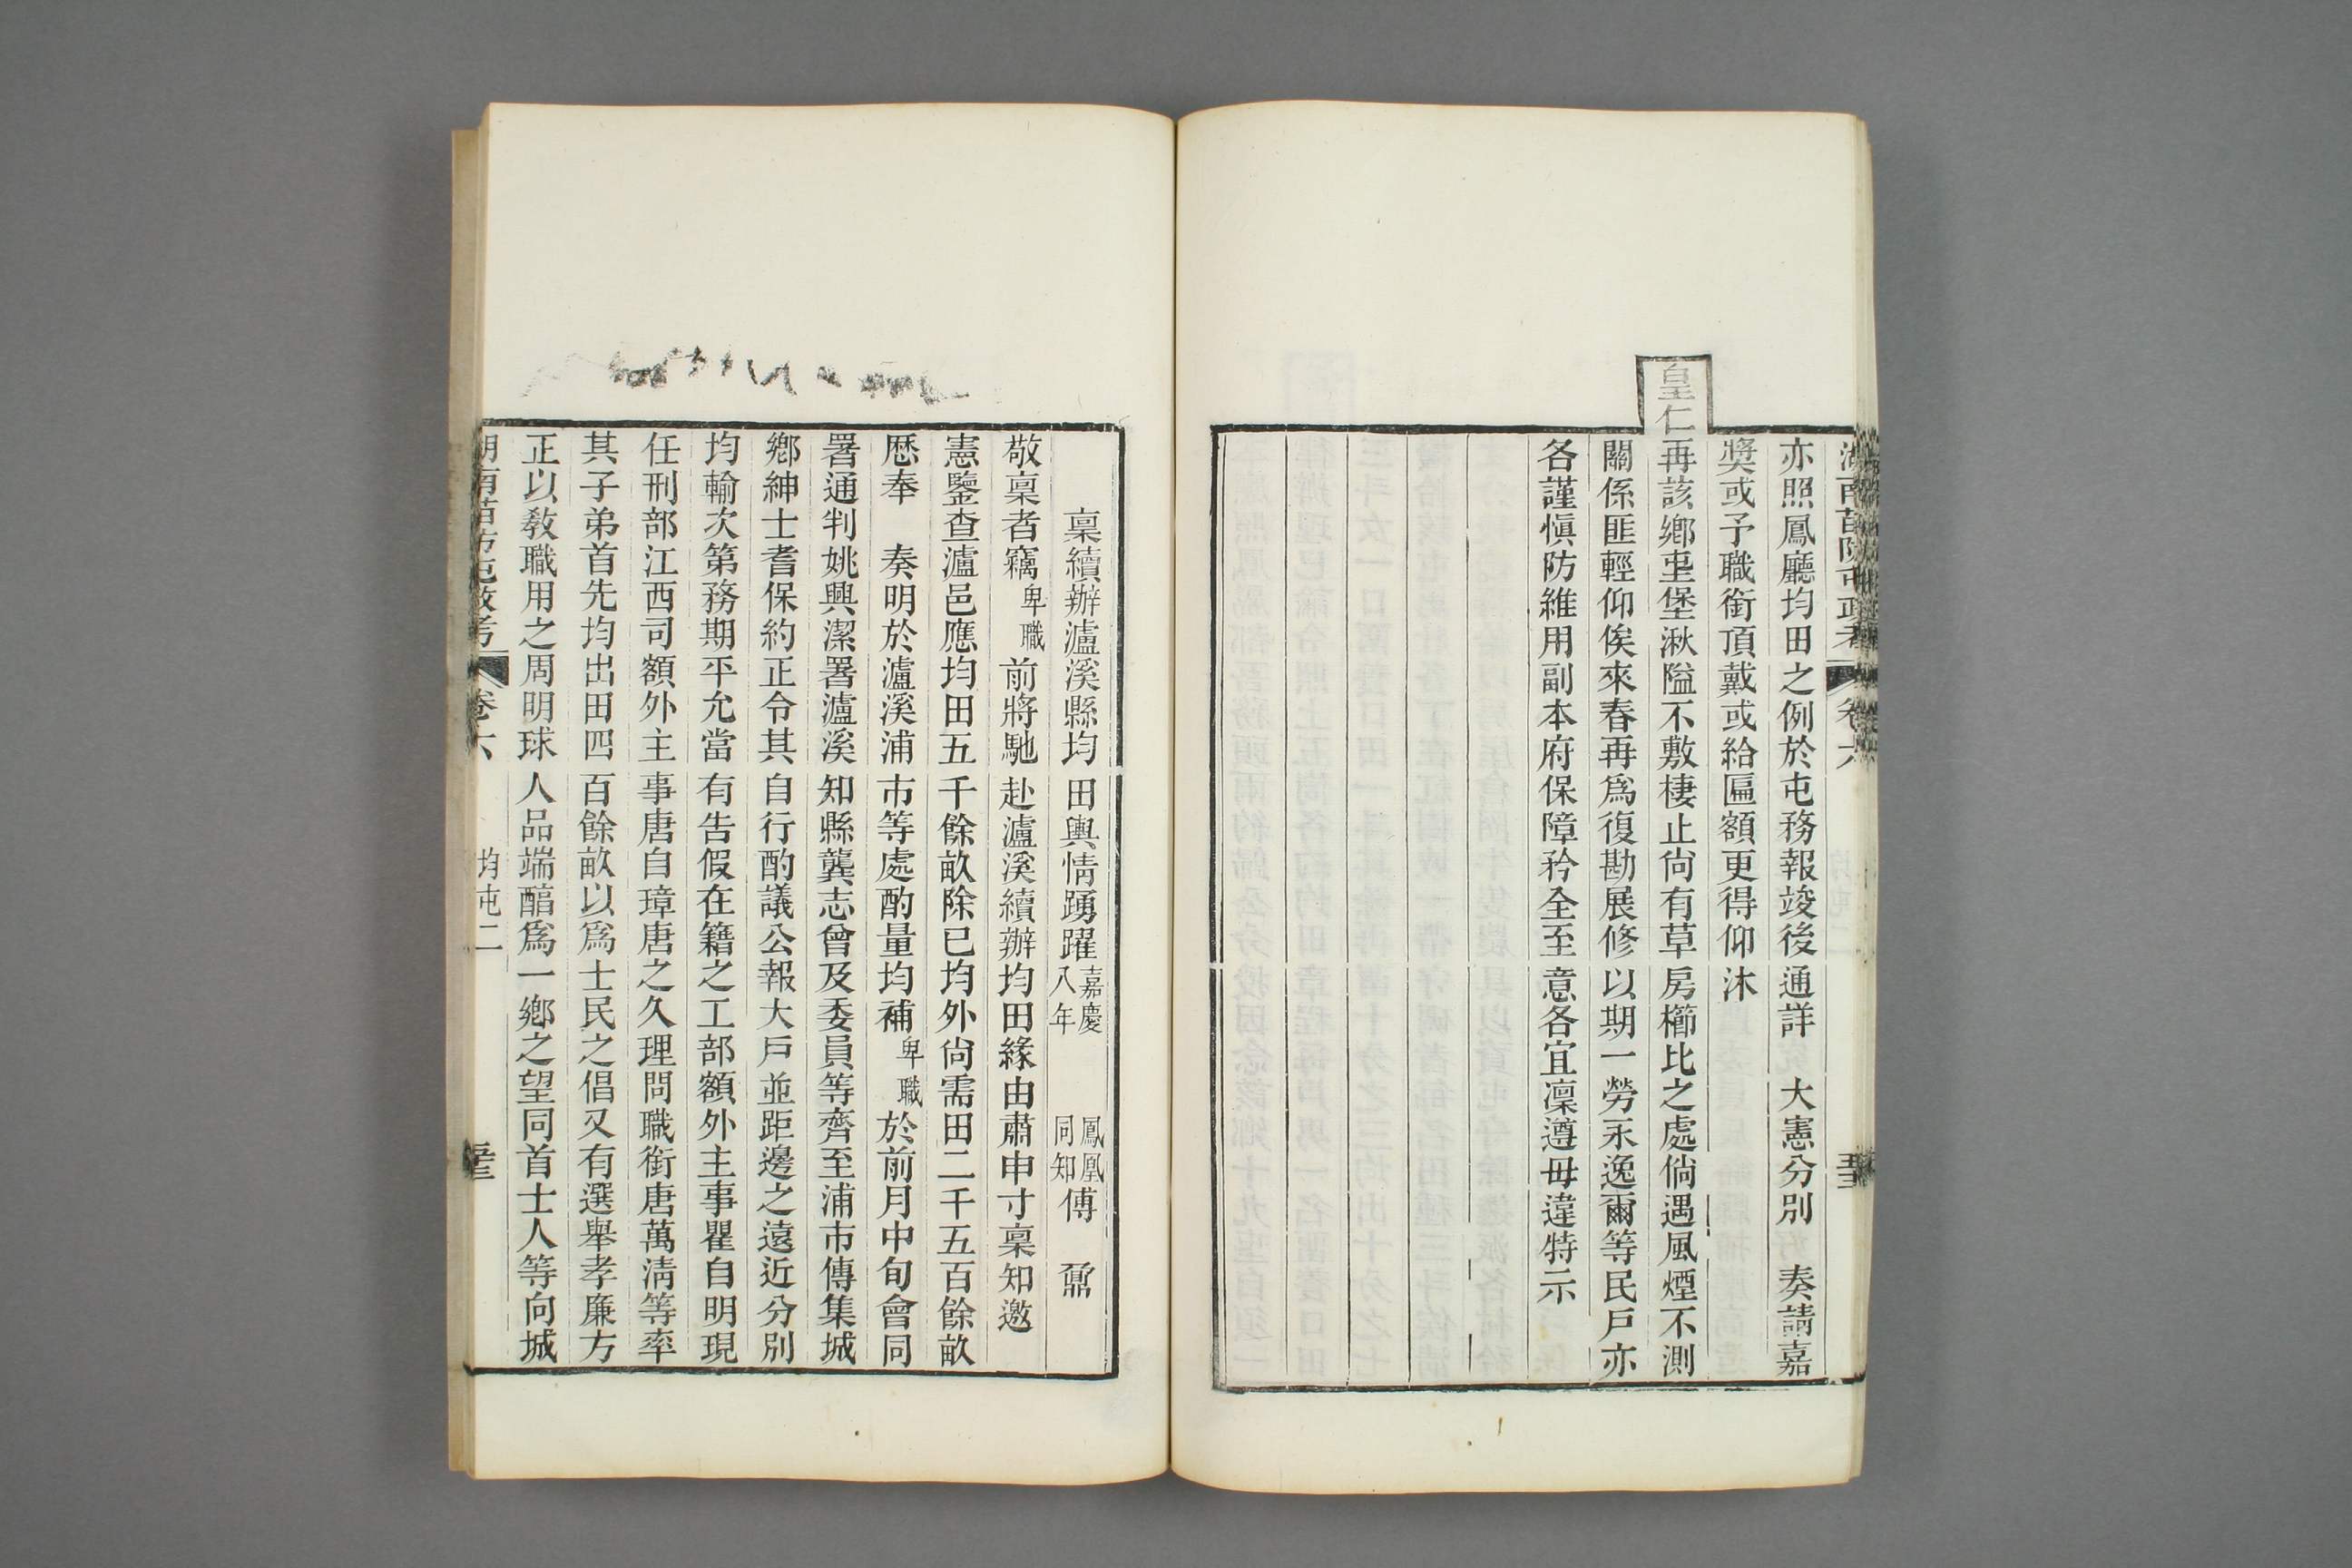 湖南苗防屯政考 卷六 均屯二
亦照鳳廳均田之例於屯務報竣後通詳 大憲分別 奏請嘉
獎或予職銜頂戴或給匾額更得仰沐
皇仁再該鄉屯堡湫隘不敷棲止尙有草房櫛比之處倘遇風煙不測
關係匪輕仰俟來春再爲復勘展修以期一勞永逸爾等民戶亦
各謹愼防維用副本府保障矜全至意各宜凜遵毋違特示
稟續辦瀘溪縣均田輿情踴躍 嘉慶八年 鳳凰同知傅 鼐
敬稟者竊卑職前將馳赴瀘溪續辦均田緣由肅申寸稟知邀
憲鑒查瀘邑應均田五千餘畝除已均外尙需田二千五百餘畝
歷奉 奏明於瀘溪浦市等處酌量均補卑職於前月中旬會同
署通判姚興潔署瀘溪知縣龔志曾及委員等齊至浦市傳集城
鄉紳士耆保約正令其自行酌議公報大戶並距邊之遠近分別
均輸次第務期平允當有告假在籍之工部額外主事瞿自明現
任刑部江西司額外主事唐自璋唐之久理問職銜唐萬淸等率
其子弟首先均出田四百餘畝以爲士民之倡又有選舉孝廉方
正以敎職用之周明球人品端醕爲一鄉之望同首士人等向城
湖南苗防屯政考 卷六 均屯二